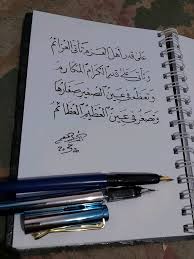 على قدر أهل العزم تأتي العزائم
وتأتي على قدر الكرام المكارم
وتعظم في عين الصغير صغارها
وتصغر في عين العظيم العظائم